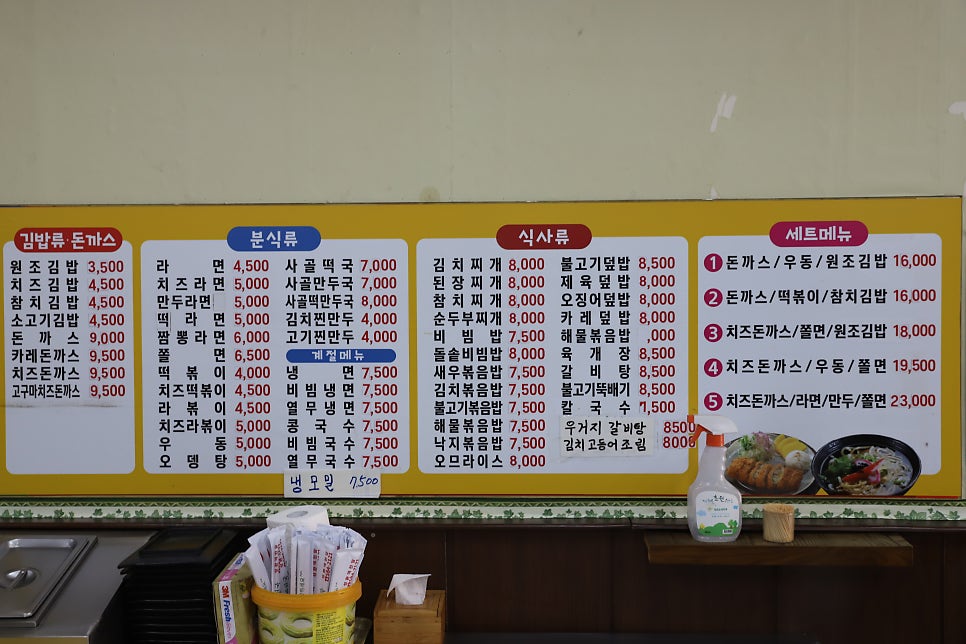 김밥류·돈까스
원조김밥 3,500
치즈김밥 4,500
참치김밥 4,500
소고기김밥 4,500
돈까스 9,000
카레돈까스 9,500
치즈돈까스 9,500
고구마치즈돈까스 9,500
분식류
라면 4,500
치즈라면 5,000
만두라면 5,000
떡라면 5,000
짬뽕라면 6,000
쫄면 6,500
떡볶이 4,000
치즈떡볶이 4,500
라볶이 4,500
치즈라볶이 5,000
우동 5,000
오뎅탕 5,000
사골떡국 7,000
사골만두국 7,000
사골떡만두국 8,000
김치찐만두 4,000
고기찐만두 4,000
계절메뉴
냉면 7,500
비빔냉면 7,500
열무냉면 7,500
콩국수 7,500
비빔국수 7,500
열무국수 7,500
냉모밀 7,500
식사류
김치찌개 8,000
된장찌개 8,000
참치찌개 8,000
순두부찌개 8,000
비빔밥 7,500
돌솥비빔밥 8,000
새우볶음밥 7,500
김치볶음밥 7,500
불고기볶음밥 7,500
해물볶음밥 7,500
낙지볶음밥 7,500
오므라이스 8,000
불고기덮밥 8,500
제육덮밥 8,000
오징어덮밥 8,000
카레덮밥 8,000
해물볶음밥 ,000
육개장 8,500
갈비탕 8,500
불고기뚝배기 8,500
칼국수 7,500
우거지갈비탕 8500
김치고등어조림 8000
세트메뉴
1 돈까스/우동/원조김밥 16,000
2 돈까스/떡볶이/참치김밥 16,000
3 치즈돈까스/쫄면/원조김밥 18,000
4 치즈돈까스/우동/쫄면 19,500
5 치즈돈까스/라면/만두/쫄면 23,000
3M
Fresh